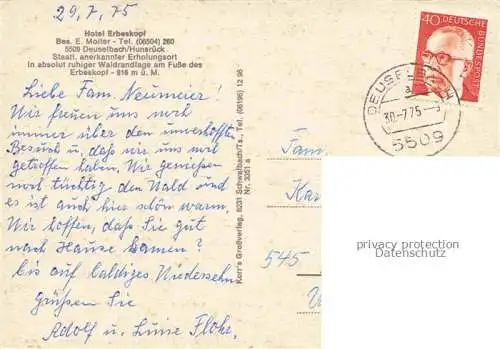 29.7.75
Hotel Erbeskopf
Bes. E. Molter - Tel. (06504) 260
5509 Deuselbach/Hunsrück
Staatl. anerkannter Erholungsort
In absolut ruhiger Waldrandlage am Fuße des
Erbeskopf - 816 m ü. M.
Liebe Fam. Neumeier!
Wir freuen uns noch
immer über den unverhofften
Besuch u. daß wir uns noch
getroffen haben. Wir genießen
noch tüchtig den Wald und
es ist auch hier schön warm.
Wir hoffen, daß Sie gut
nach Hause kamen?
bis auf baldiges Wiedersehn
Grüßen Sie
Adolf u. Luise Flohr.
Korr's Großverlag, 6231 Schwalbach/Ts., Tel. (06196) 12 96
Nr. 3251 a
40 DEUTSCHE
BUNDESPOST
DEUSELBACH
a
30.-7.75-
5509
Fam.
Kar
545
privacy protection
Datenschutz